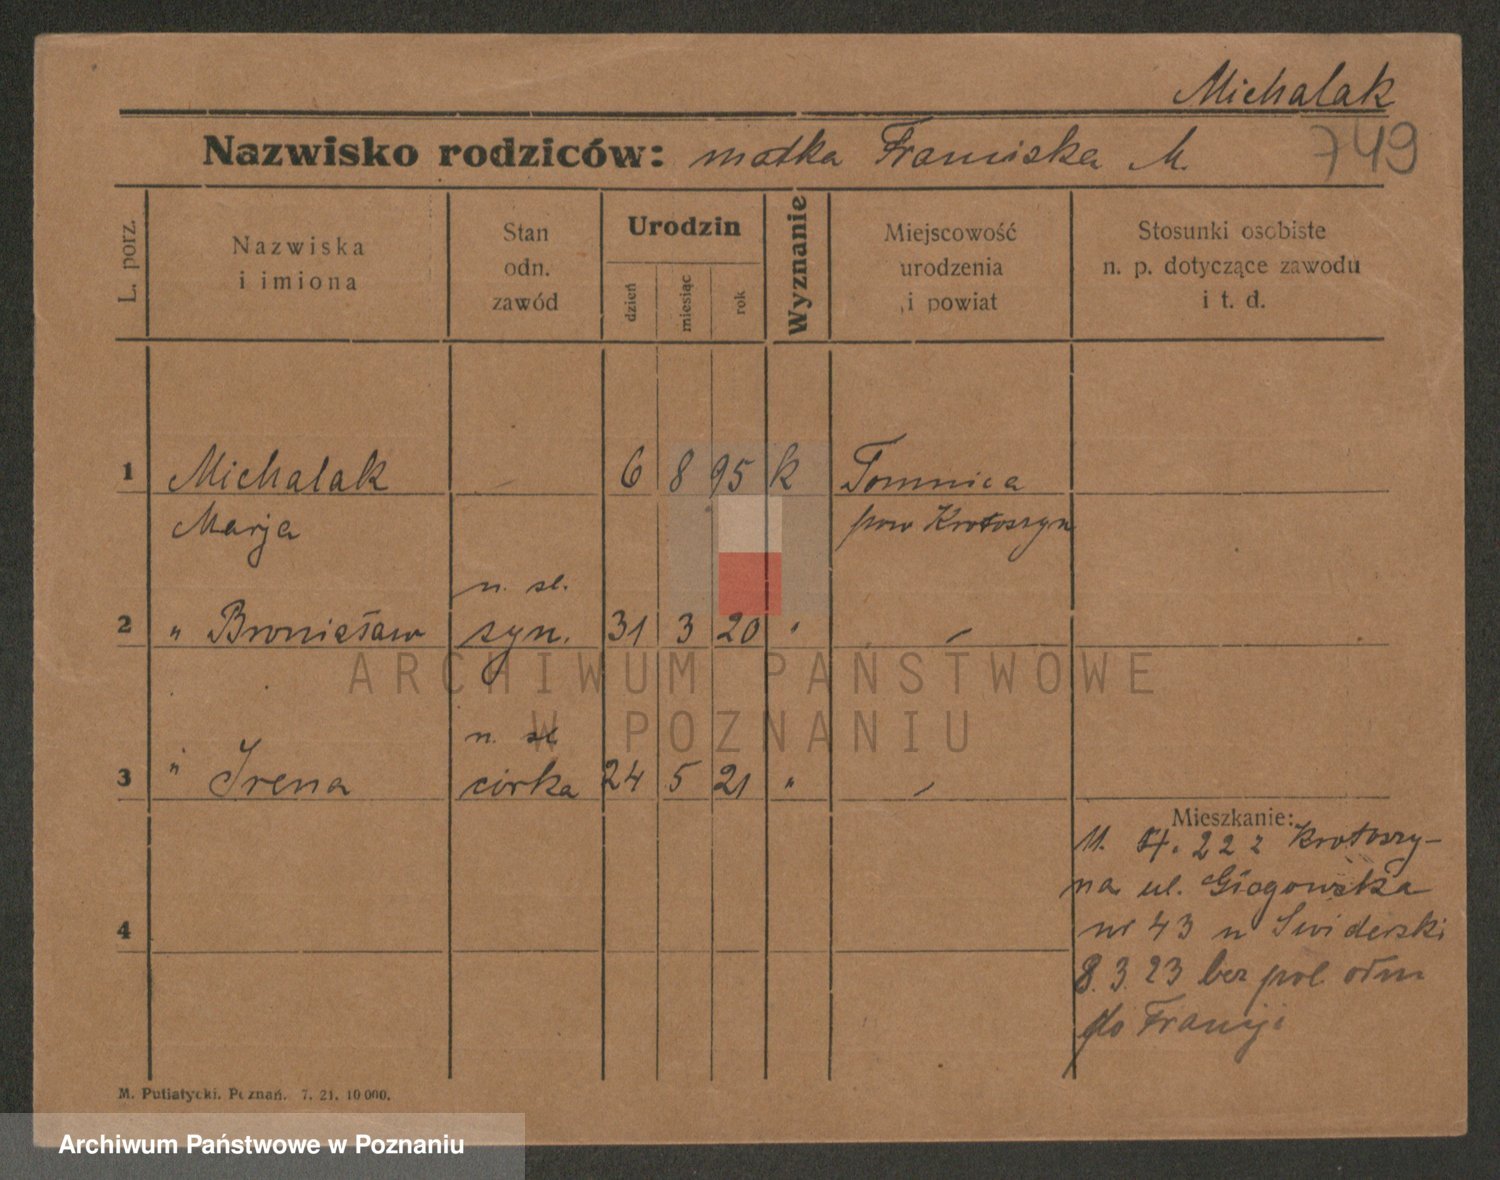 Michalak
749
Nazwisko rodziców: matka Franciska M.
L. porz.
Nazwiska
i imiona
Stan
odn.
zawód
Urodzin
dzień
miesiąc
rok
Wyznanie
Miejscowość
urodzenia
i powiat
Stosunki osobiste
n. p. dotyczące zawodu
i t. d.
1 Michalak 6 8 95 k Tomnica
Marja pow Krotoszyn
n. sl.
2 " Bronisław syn. 31 3 20 " "
n. sl
3 " Irena córka 24 5 21 " "
Mieszkanie:
11. 4. 22 z Krotoszy-
na ul. Głogowska
4
nr 43 u Swiderski
8. 3. 23 bez pol. ołm
do Francji
M. Putiatycki. Poznań. 7. 21. 10 000.
ARCHIWUM PAŃSTWOWE
W POZNANIU
Archiwum Państwowe w Poznaniu